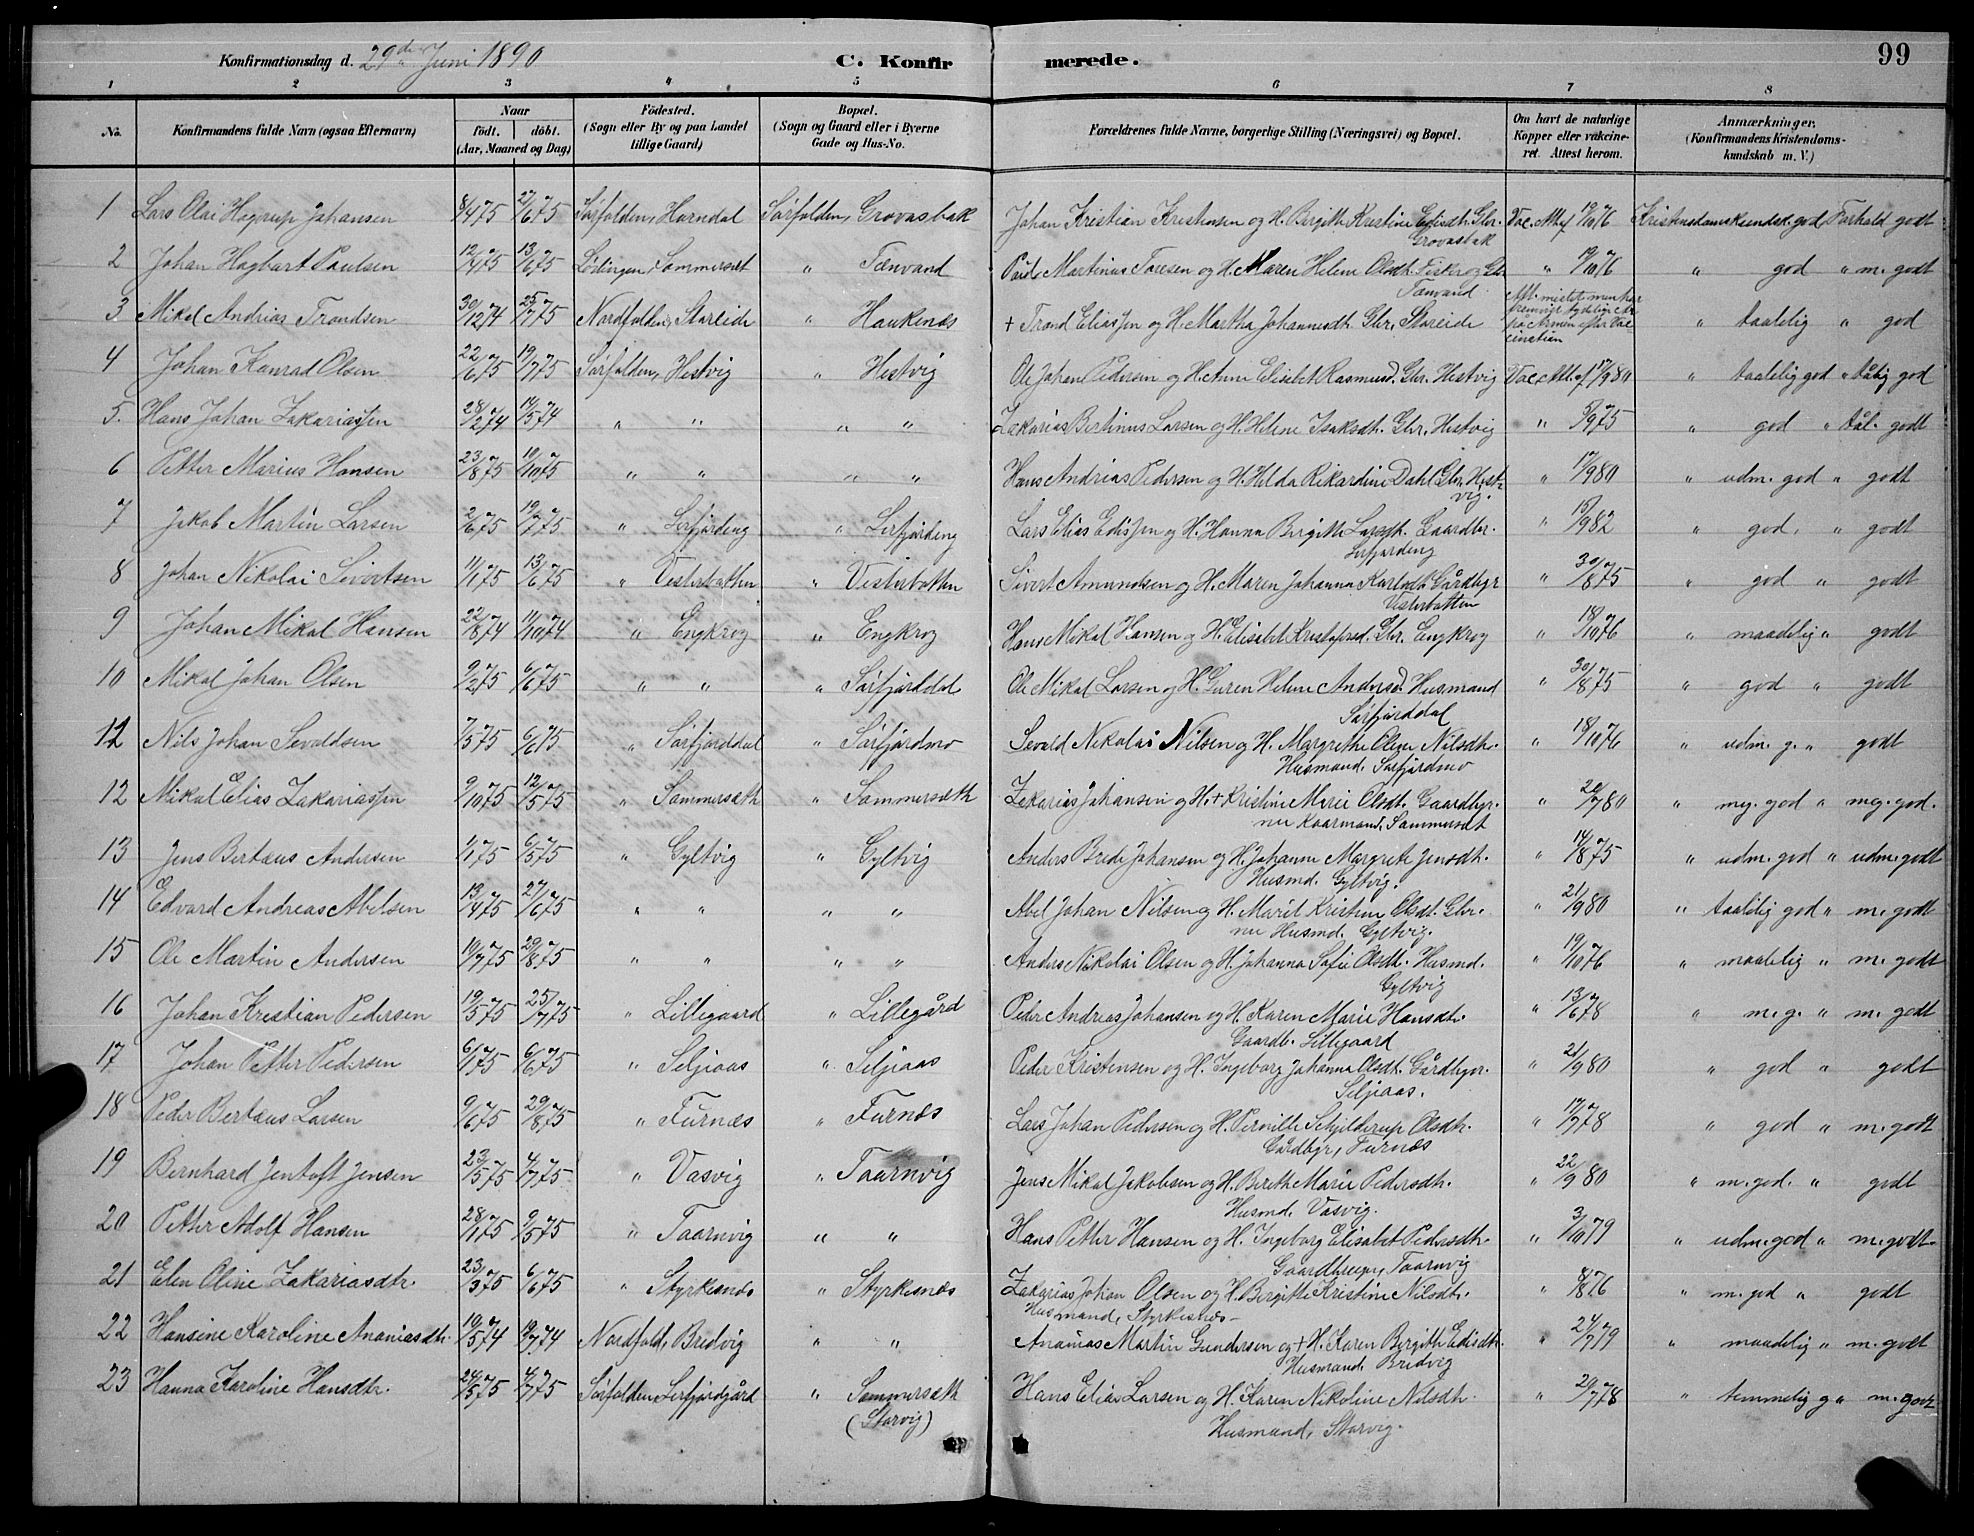 Konfirmationsdag d. 29de Juni 1890 C. Konfirmerede. 99
1 2 3 4 5 6 7 8
No. Konfirmandens fulde Navn (ogsaa Efternavn) Naar födt. döbt. (Aar, Maaned og Dag) Födested. (Sogn eller By og paa Landet tillige Gaard) Bopæl. (Sogn og Gaard eller i Byerne Gade og Hus-No. Forældrenes fulde Navne, borgerlige Stilling (Næringsvei) og Bopæl. Om havt de naturlige Kopper eller vakcineret. Attest herom. Anmærkninger, (Konfirmandens Kristendomskundskab m. V.)
1 Lars Olai Hagrup Johansen 8/4 75 27/6 75 Sørfolden, Horndal Sørfolden, Grovasbak Johan Kristian Kristensen og H. Birgitte Kristine Gbr. Grovasbak Vac. Att. af 19/10 76 god Forhold godt
2 Johan Hagbart Paulsen 12/4 75 13/6 75 Lødingen, Sommerset " Tænvand Paul Martinus Toresen og H. Maren Helene Olsdt. Fisker og Gbr. Tænvand " 19/10 76 " god " m. godt
3 Mikal Andrias Trondsen 30/12 74 25/7 75 Nordfolden, Storeide " Haukenæs + Trond Eliassen og H. Martha Johannesdt. Gbr. Storeide Att. mistet men har tydelige Ar på Armen efter Vaccination " taalelig " god
4 Johan Konrad Olsen 22/6 75 19/7 75 Sørfolden, Hestvig " Hestvig Ole Johan Pedersen og H. Anne Elisabet Rasmusd. Gbr. Hestvig Vac. Att. af 17/9 80 " taalelig god " tålig god
5. Hans Johan Zakariassen 28/2 74 14/5 74 " " " " Zakarias Bertinus Larsen og H. Helene Isaksdt. Gbr. Hestvig " 5/9 75 " god " tål. godt
6 Petter Marius Hansen 23/8 75 10/10 75 " " " " Hans Andrias Pedersen og H. Hilda Rikardine Dahl Gbr. Hestvig. " 17/9 80 " udm. god " godt
7 Jakob Martin Larsen 2/6 75 19/7 75 " Lerfjordeng " Lerfjordeng Lars Elias Edissen og H. Hanna Birgitte Larsdt. Gaardbr. Lerfjordeng " 15/9 82 " god. " godt
8 Johan Nikolai Sivertsen 11/1 75 13/6 75 " Vesterbotten " Vesterbotten Sivert Amundsen og H. Maren Johanna Karlsdt. Gårdbgr Vesterbotten " 30/8 75 " god " godt
9 Johan Mikal Hansen 22/8 74 11/10 74 " Engkrog " Engkrog Hans Mikal Hansen og H. Elisabet Kristofersd. Gbr. Engkrog " 18/10 76 " maadelig " godt
10 Mikal Johan Olsen 9/2 75 6/6 75 " " " Sørfjorddal Ole Mikal Larsen og H. Guren Helene Andersd. Husmand Sørfjorddal " 30/8 75 " god " godt
12 Nils Johan Sevaldsen 7/3 75 6/6 75 " Sørfjorddal " Sørfjordmo Sevald Nikolai Nilsen og H. Margrethe Oline Nilsdt. Husmand, Sørfjordmo " 18/10 76 " udm. g. " godt
12 Mikal Elias Zakariassen 9/10 75 12/5 75 " Sommersæth " Sommersæth Zakarias Johansen og H. + Kristine Marie Olsdt. Gaardbgr. nu Kaarmand, Sommerset " 20/7 80 " meg. god " meg. god.
13 Jens Bertæus Andersen 1/1 75 6/5 75 " Gyltvig " Gyltvig Anders Brede Johansen og H. Johanne Margrete Jensdt. Husmd. Gyltvig. " 14/8 75 " udm. god " udm. godt
14 Edvard Andreas Abelsen 13/4 75 27/6 75 " " " " Abel Johan Nilsen og H. Marit Kristine Olsdt. Gbr. nu Husmd. Gyltvig. " 21/9 80 " taalelig god " m. godt
15 Ole Martin Andersen 19/7 75 29/8 75 " " " " Anders Nikolai Olsen og H. Johanna Sofie Olsdt. Husmd. Gyltvig " 19/10 76 " maadelig " m. godt
16 Johan Kristian Pedersen 19/5 75 25/7 75 " Lillegaard " Lillegård Peder Andreas Johansen og H. Karen Marie Hansdt. Gaardb. Lillegaard " 13/6 78 " m. g. " m. godt
17 Johan Petter Pedersen 6/1 75 6/6 75 " Seljeaas " Seljeaas Peder Kristensen og H. Ingeborg Johanna Olsdt. Gårdbgr. Seljeaas. " 21/9 80 " god " godt
18 Peder Bertæus Larsen 9/6 75 29/8 75 " Furnæs " Furnæs Lars Johan Pedersen og H. Pernille Schjelderup Olsdt. Gårdbgr, Furnæs " 17/7 78 " god " m. godt
19 Bernhard Jentoft Jensen 23/5 75 4/7 75 " Vasvig " Taarnvig Jens Mikal Jakobsen og H. Berith Marie Pedersdt. Husmd. Vasvig. " 22/9 80 " m. god. " godt
20 Petter Adolf Hansen 28/1 75 9/5 75 " Taarnvig " " Hans Petter Hansen og H. Ingeborg Elisabet Pedersdt. Gaardbruger, Taarnvig " 3/10 79 " udm. god " m. godt
21 Elen Oline Zakariasdtr. 23/3 75 6/6 75 " Styrkesnæs " Styrkesnæs Zakarias Johan Olsen og H. Birgitte Kristine Nilsdt. Husmand, Styrkesnæs 8/8 76 " m. god " godt
22 Hansine Karoline Ananiasdtr. 19/5 74 19/7 74 Nordfold, Bredvig " " Ananias Martin Gundersen og + H. Karen Birgitte Edisdt. Husmand. Bredvig " 24/7 79 " maadelig " m. godt
23 Hanna Karoline Hansdtr. 24/5 75 4/7 75 Sørfolden, Lerfjordgård " Sommersæth (Storvig) Hans Elias Larsen og H. Karen Nikoline Nilsdt. Husmand, Storvig. " 20/7 78 " temmelig g " m. godt